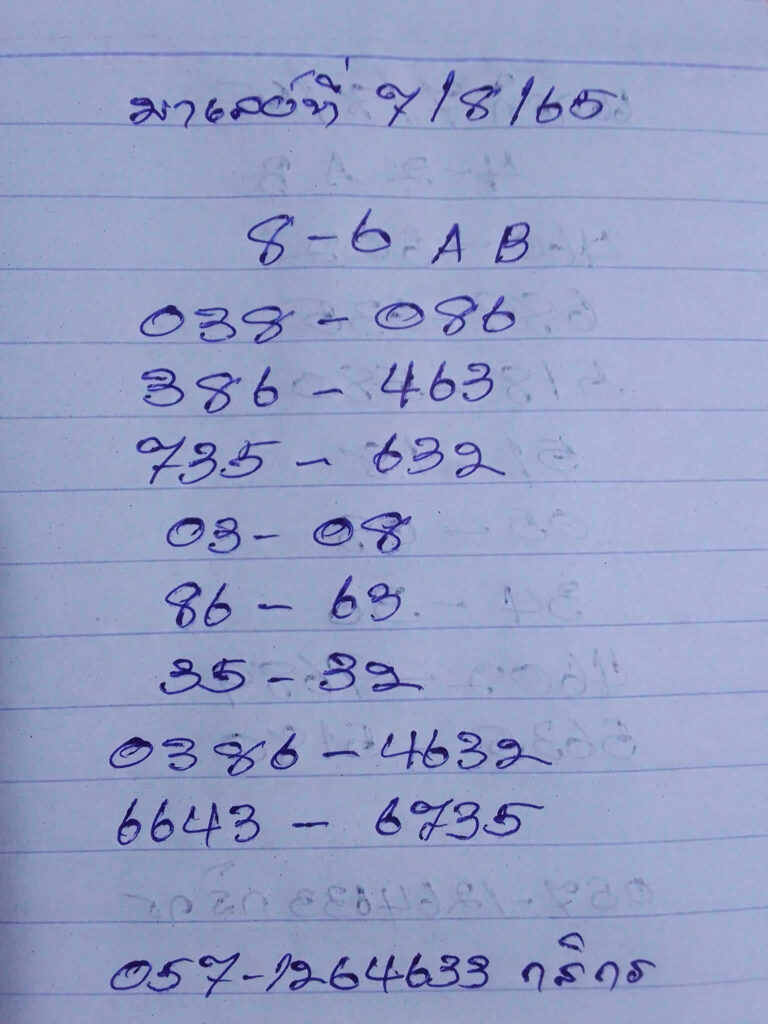 มาเลย์ที่ 7/8/65
8-6 A B
038 - 086
386 - 463
735 - 632
03 - 08
86 - 63
35 - 32
0386 - 4632
6643 - 6735
057-1264633 กสิกร